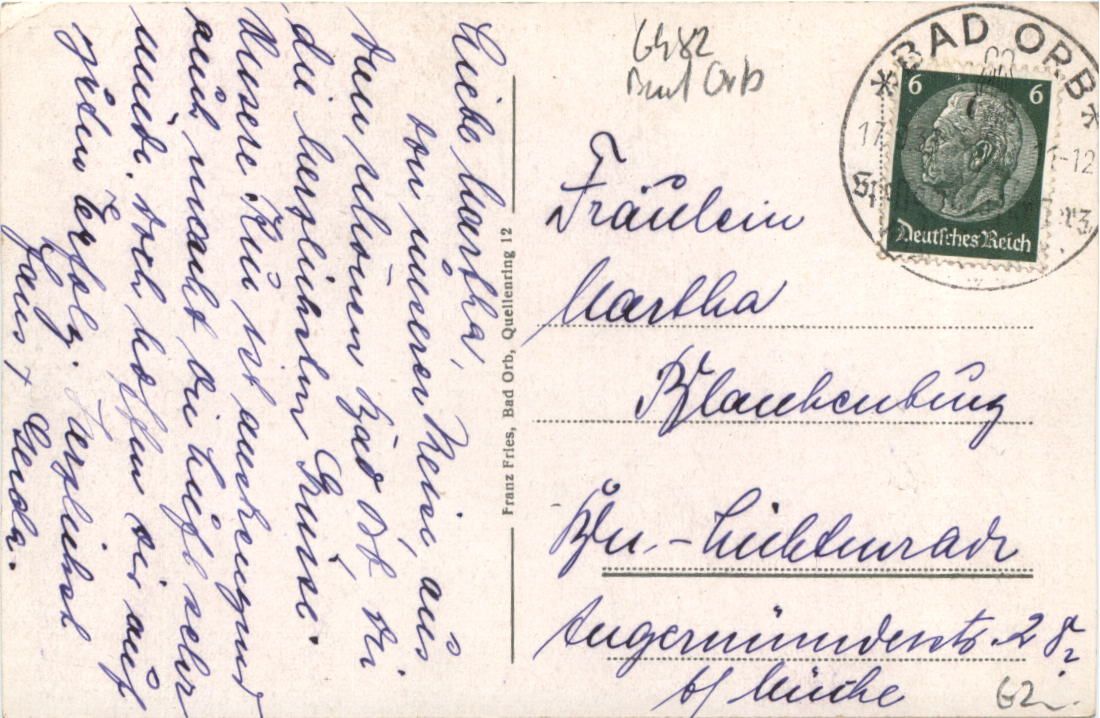 Liebe Martha,
von unserer Reise, aus
dem schönen Bad Orb Dir
die herzlichsten Grüsse.
Unsere Kur ist anstrengend
auch macht die Luft sehr
müde. Doch hoffen wir auf
guten Erfolg. Herzlichst
Hans + Gerda.
Franz Fries, Bad Orb, Quellenring 12
6482
Bad Orb
* BAD ORB *
6 6
Deutsches Reich
Fräulein
Martha
Blankenburg
Bln. - Lichtenrade
Angermünderstr. 28
b/
62